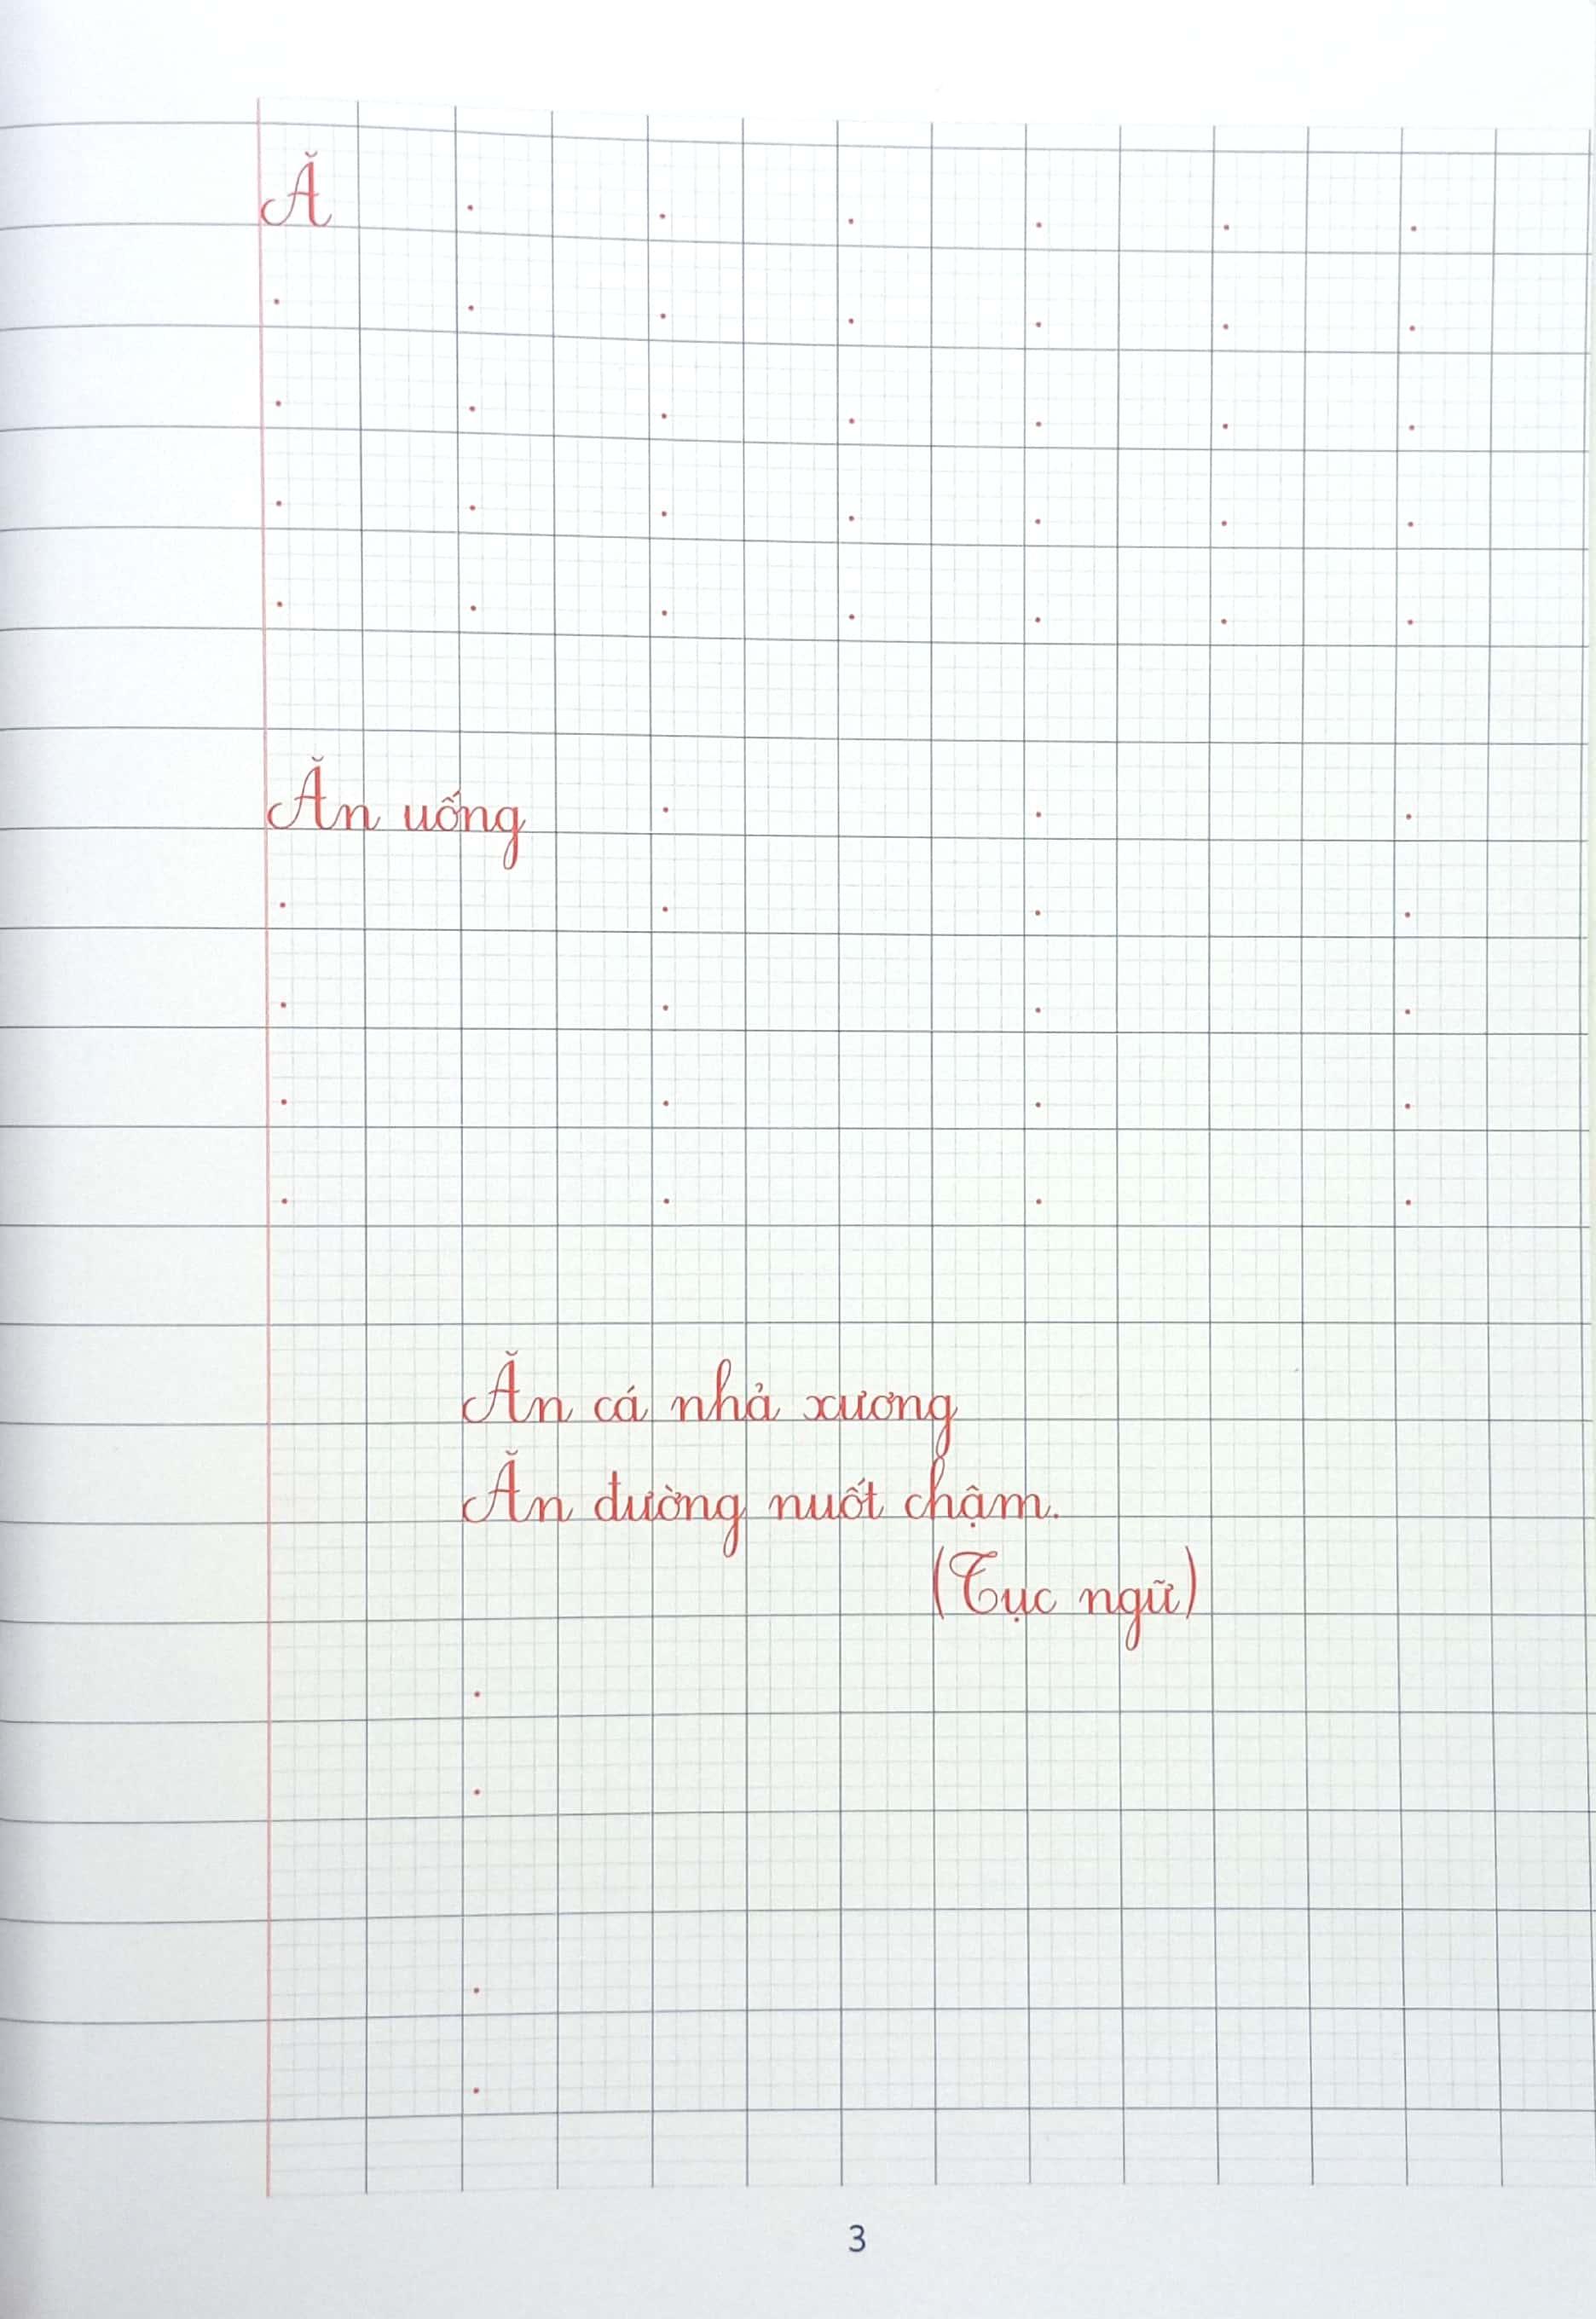 Ă
Ăn uống
Ăn cá nhả xương
Ăn đường nuốt chậm.
(Tục ngữ)
3